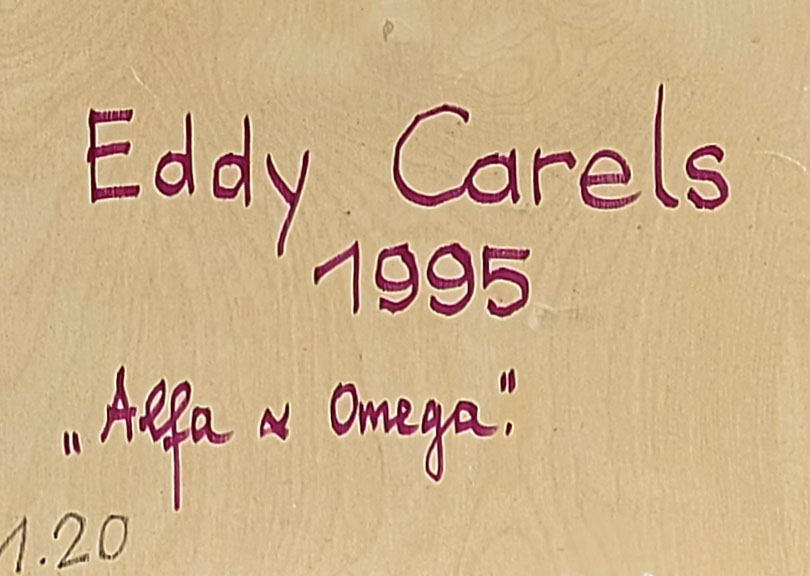 Eddy Carels
1995
„Alfa & Omega".
1.20